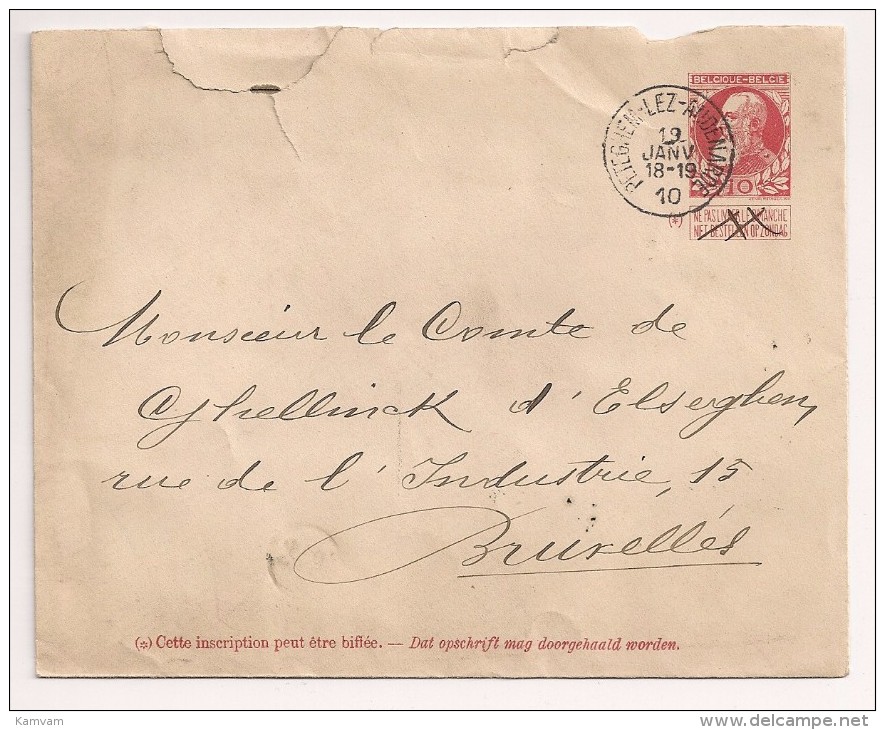 BELGIQUE-BELGIE
PETEGHEM-LEZ-AUDENARDE
19
JANV
18-19
10
10
(*)
NE PAS LIVRER LE DIMANCHE
NIET BESTELLEN OP ZONDAG
Monsieur le Comte de
Ghellinck d'Elseghem,
rue de l'Industrie, 15
Bruxelles
(*) Cette inscription peut être biffée. — Dat opschrift mag doorgehaald worden.
Kamvam
delcampe.net